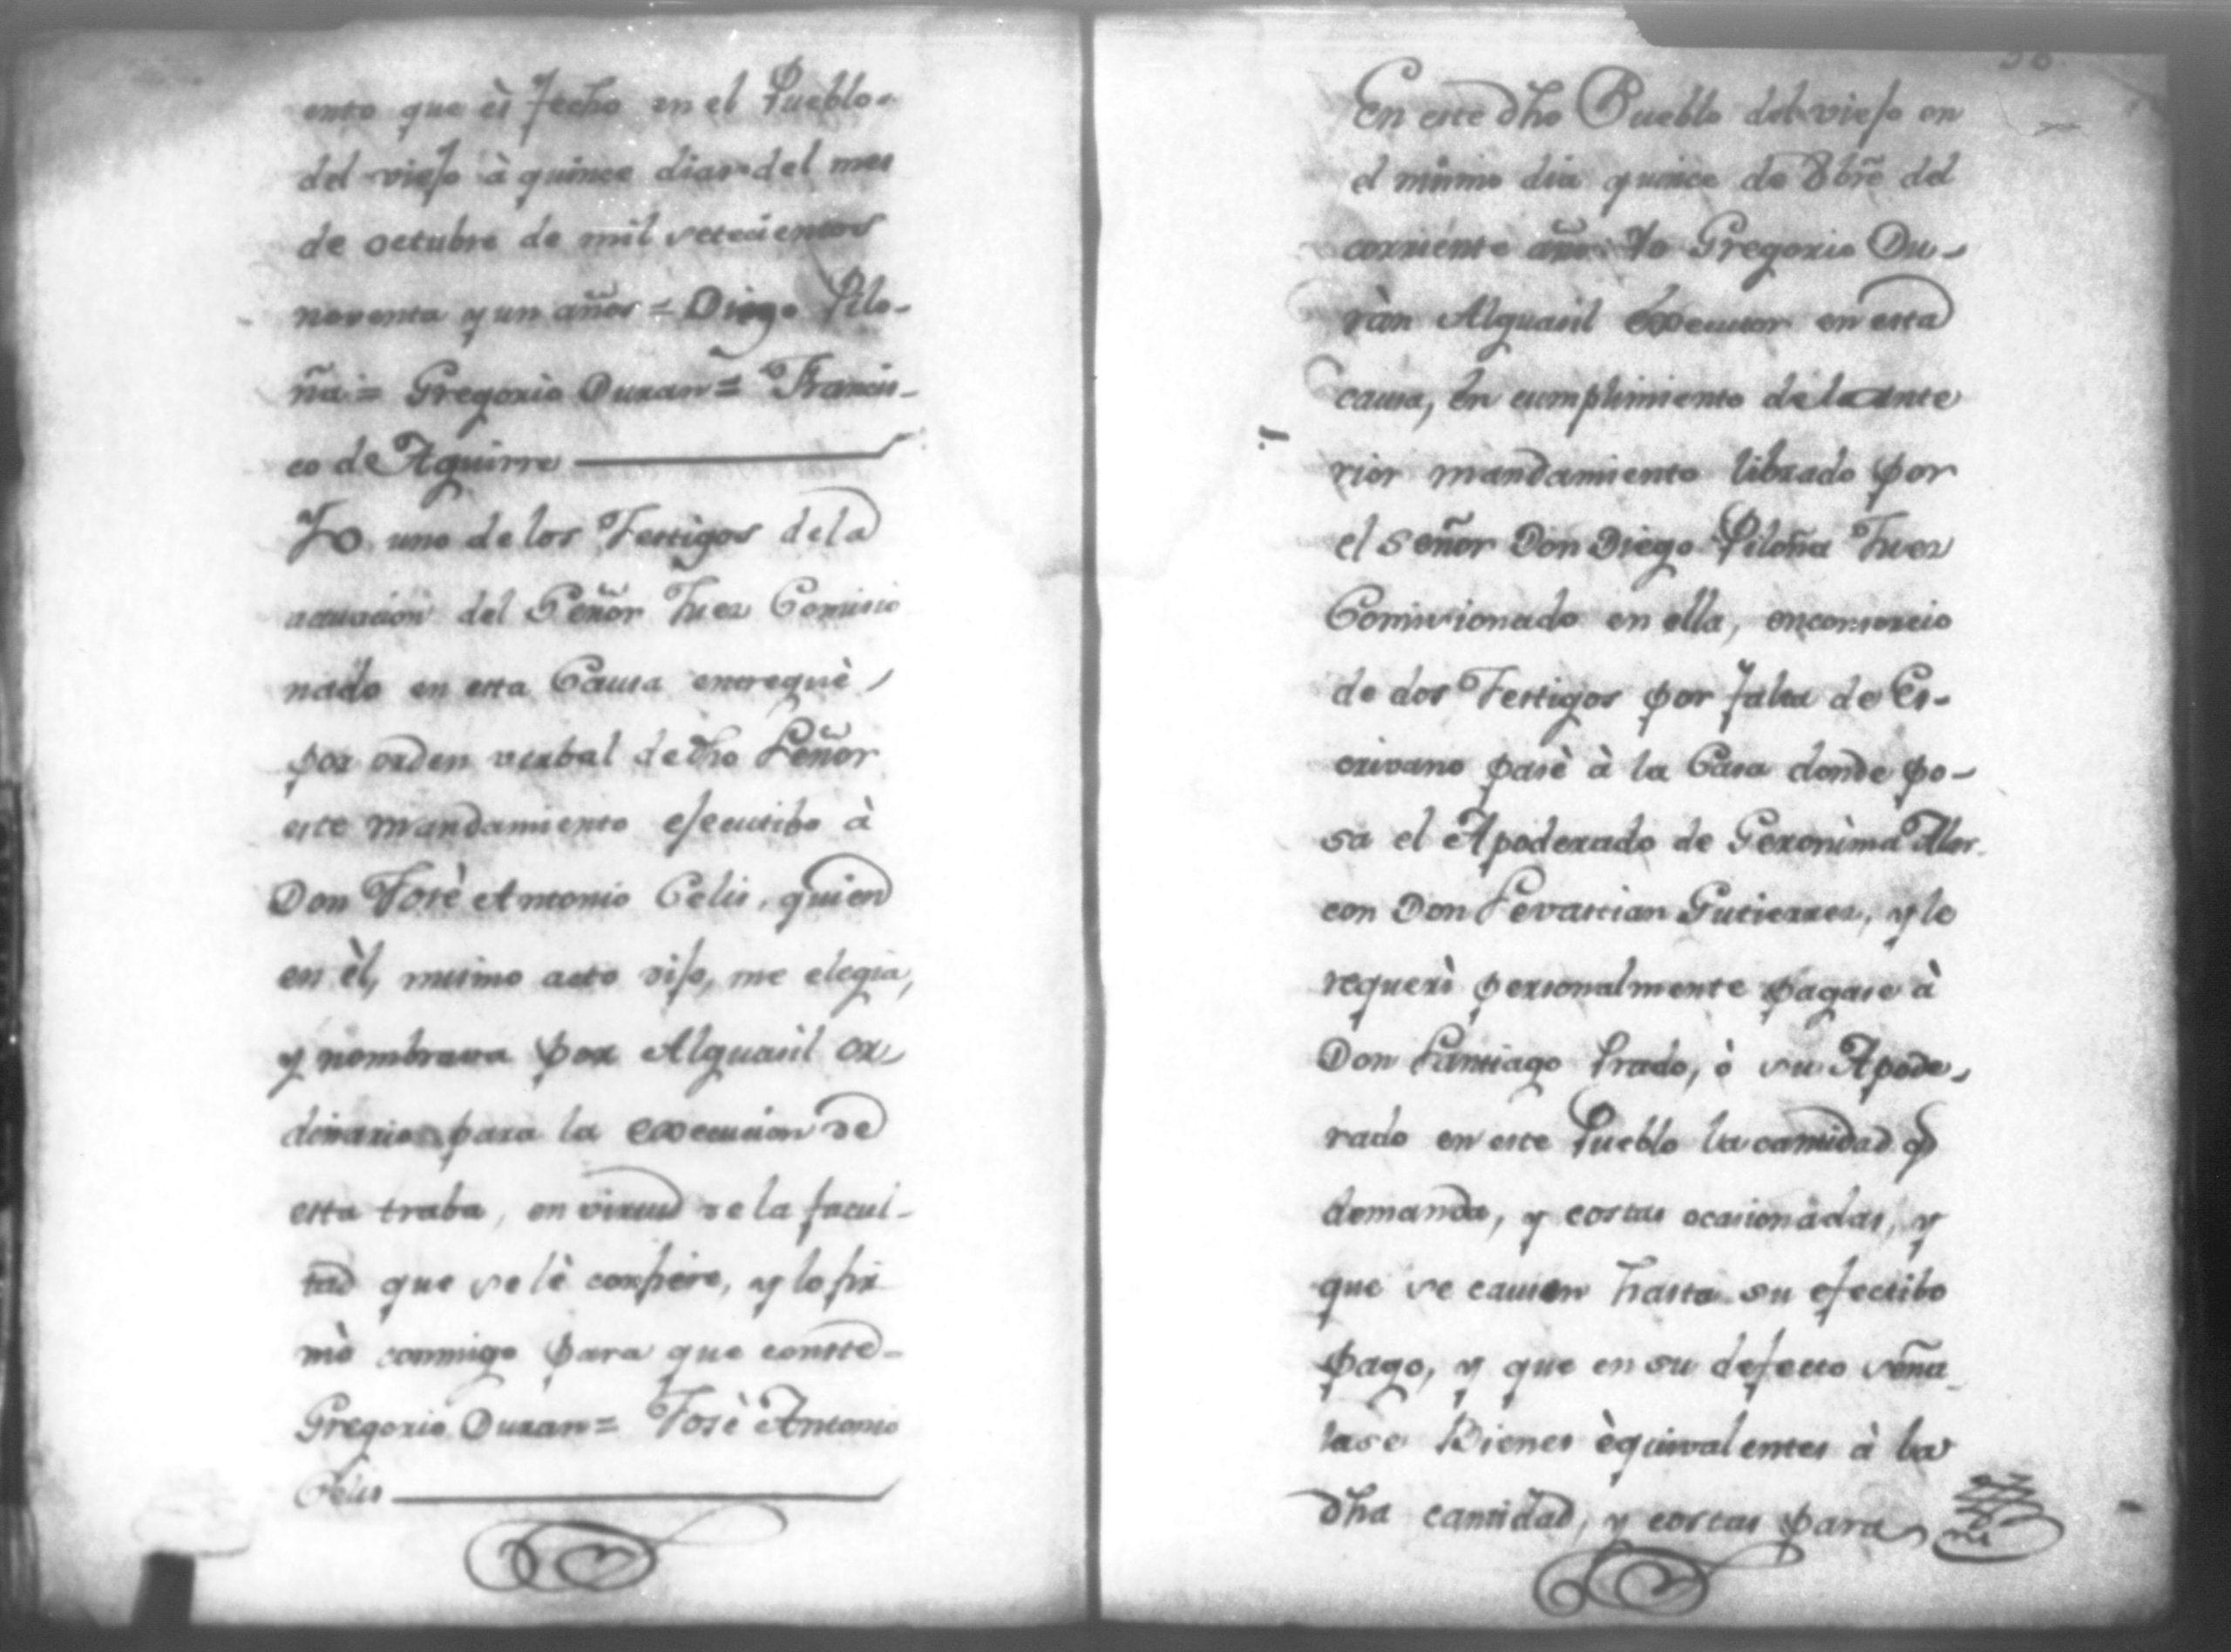 ento que és fecho en el Pueblo
del viejo à quince dias del mes
de octubre de mil setecientos
noventa y un años = Diego Pilo-
ña = Gregorio Duran = Francis-
co de Aguirre
Yo uno de los Testigos de la
actuacion del Señor Juez Comisio
nado en esta Causa entreguè
por orden verbal de dho Señor
este mandamiento ejecutibo à
Don Josè Antonio Celis, quien
en èl, mismo acto dijo, me elegia,
y nombrava por Alguasil or
dinario para la execucion de
esta traba, en virtud de la facul-
tad que se lè confiere, y lo fir
mò conmigo para que conste-
Gregorio Duran = Josè Antonio
Celis
36
En este dho Pueblo del viejo en
el mismo dia quince de 8bre del
corriente año. Yo Gregorio Du-
ràn Alguasil Executor en esta
causa, en cumplimiento de la ante
rior mandamiento librado por
el Señor Don Diego Piloña Juez
Comisionado en ella, en consorcio
de dos Testigos por falta de Es-
crivano pasè à la Casa donde po-
sa el Apoderado de Geronima Alar
con Don Sevastian Gutierrez, y le
requerì personalmente pagase à
Don Santiago Prado, ò su Apode-
rado en este Pueblo la cantidad q
demanda, y costas ocasionadas, y
que se causen hasta su efectibo
pago, y que en su defecto seña
lase Bienes èquivalentes à la
dha cantidad, y costas para